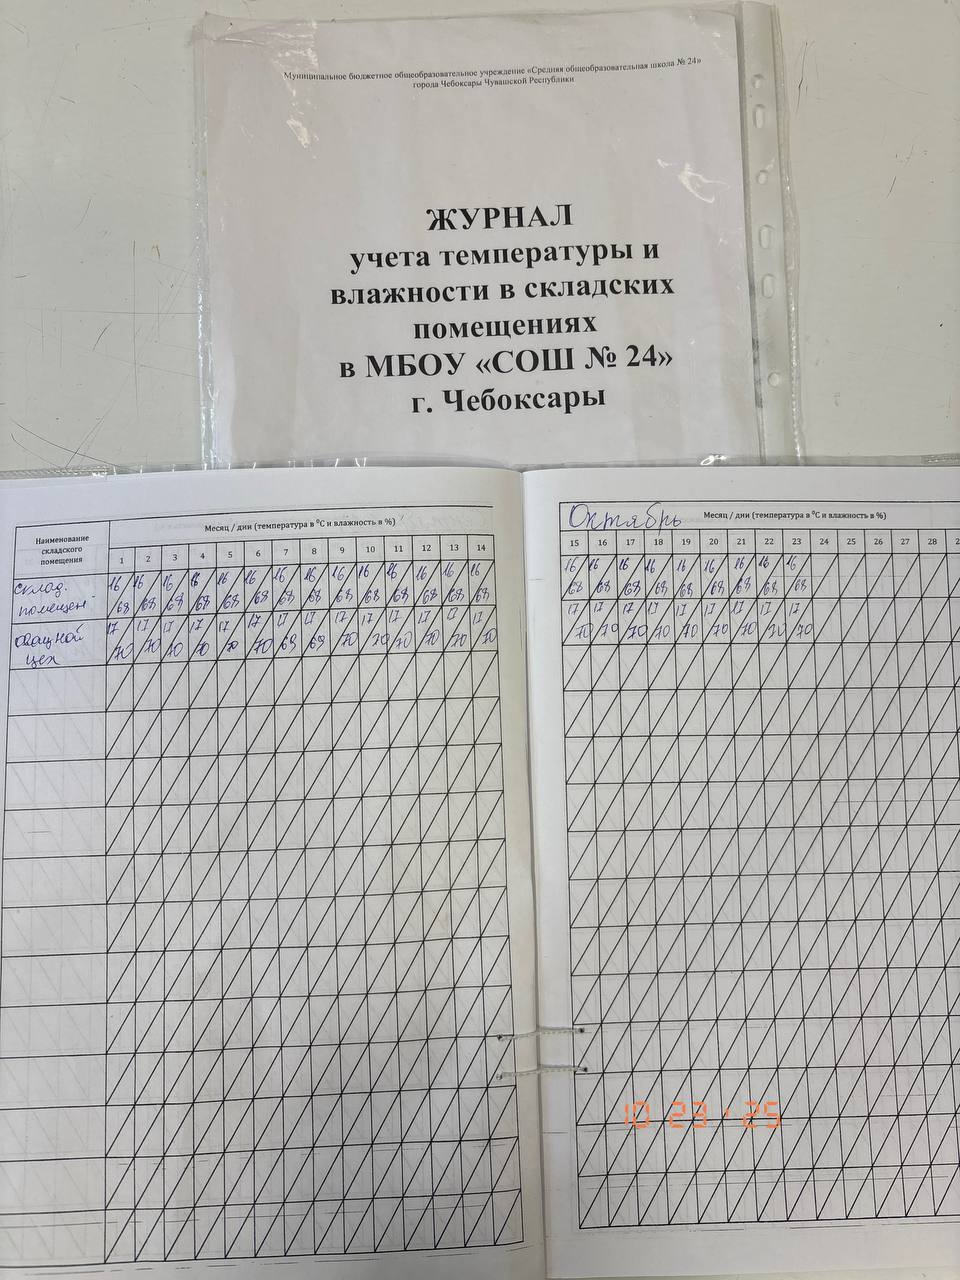 Муниципальное бюджетное общеобразовательное учреждение «Средняя общеобразовательная школа № 24»
города Чебоксары Чувашской Республики
ЖУРНАЛ
учета температуры и
влажности в складских
помещениях
в МБОУ «СОШ № 24»
г. Чебоксары
Наименование складского помещения
Месяц / дни (температура в ⁰С и влажность в %)
1 2 3 4 5 6 7 8 9 10 11 12 13 14
склад.
16 16 16 16 16 16 16 16 16 16 16 16 16 16
помещен
68 68 68 68 68 68 68 68 68 68 68 68 68 68
овощной
17 17 17 17 17 17 17 17 17 17 17 17 17 17
цех
70 70 70 70 70 70 69 69 70 70 70 70 70 70
Октябрь Месяц / дни (температура в ⁰С и влажность в %)
15 16 17 18 19 20 21 22 23 24 25 26 27 28
16 16 16 16 16 16 16 16 16
68 68 68 68 68 68 68 68 68
17 17 17 17 17 17 17 17 17
70 70 70 70 70 70 70 70 70
10 23 ' 25